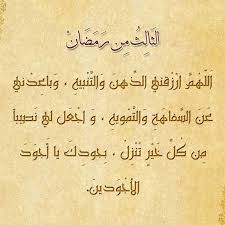 الثَالِثُ مِن رَمَضَان
اَللّهُمَّ ارْزُقني الذِّهنَ وَالتَّنْبِيهَ ، وَباعِدْني
عَنِ السَّفاهَةِ وَالتَّمْويهِ ، وَ اجْعَل لي نَصيباً
مِن كُلِّ خَيْرٍ تُنْزِلُ ، بِجودِكَ يا أَجوَدَ
الأَجْوَدينَ.